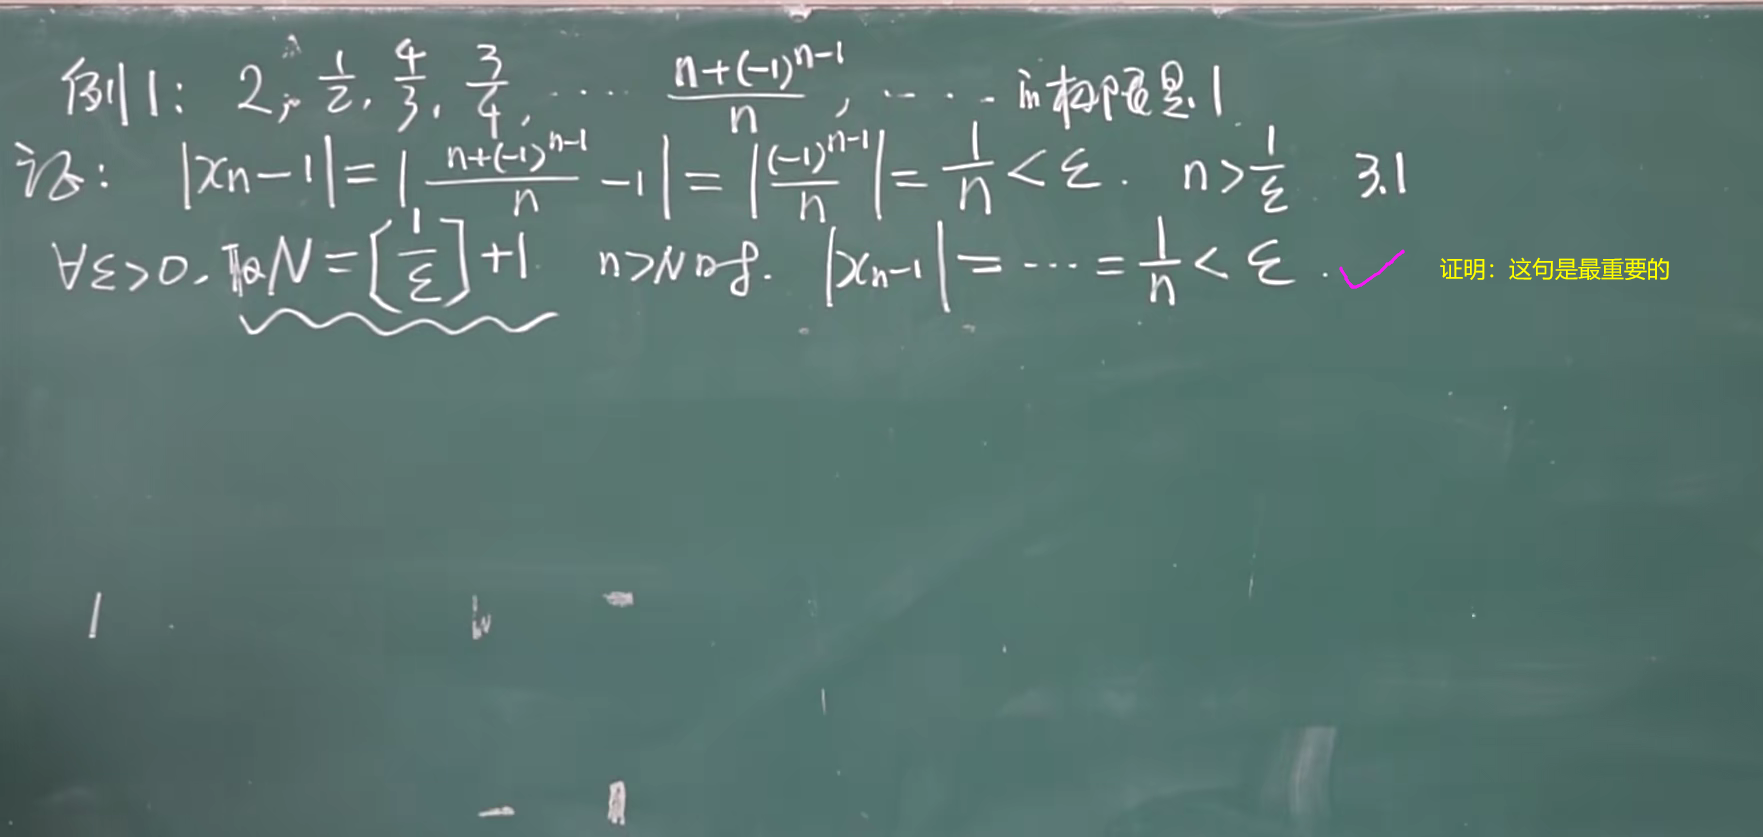 例1: 2, 1/2, 4/3, 3/4, ······ (n+(-1)^{n-1})/n, ···· 的极限是1.
证: |xn-1| = |(n+(-1)^{n-1})/n -1| = |(-1)^{n-1}/n| = 1/n < ε. n>1/ε 3.1
∀ε>0. 取N=[1/ε]+1 n>N时. |xn-1| = ··· = 1/n < ε. ✓ 证明：这句是最重要的